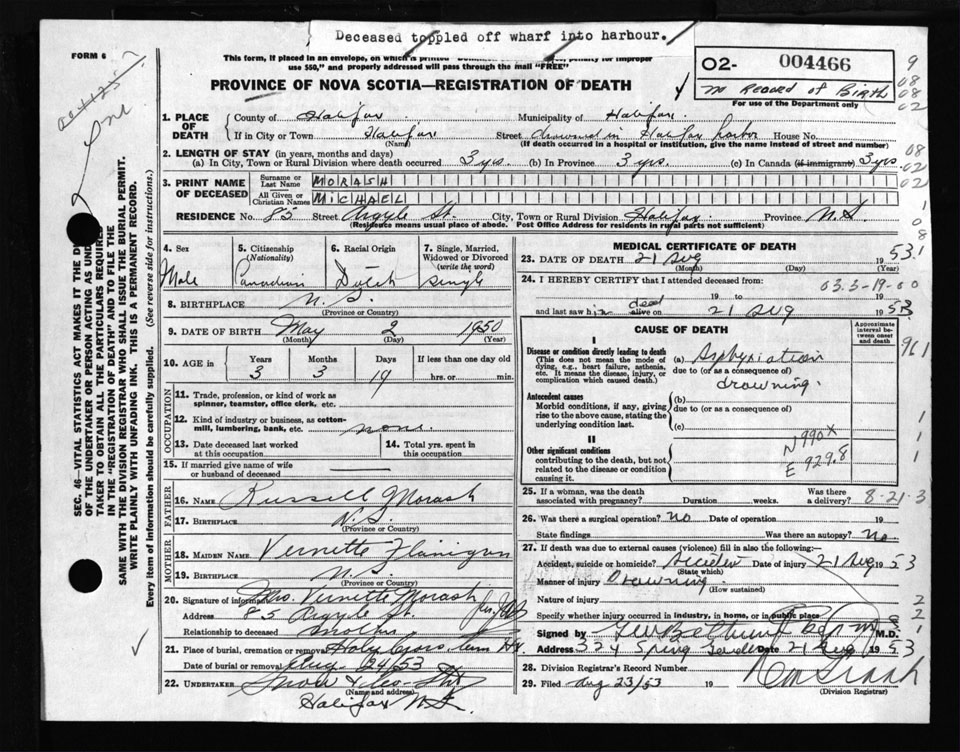 Deceased toppled off wharf into harbour.
FORM 6
This form, if placed in an envelope, on which is printed
use $50," and properly addressed will pass through the mail "FREE"
penalty for improper
PROVINCE OF NOVA SCOTIA—REGISTRATION OF DEATH
O2- 004466
no Record of Birth
For use of the Department only
9
08
08
02
1. PLACE OF DEATH
County of Halifax Municipality of Halifax.
If in City or Town Halifax Street drowned in Halifax harbor House No.
(Name) (If death occurred in a hospital or institution, give the name instead of street and number)
2. LENGTH OF STAY (in years, months and days)
(a) In City, Town or Rural Division where death occurred 3 yrs. (b) In Province 3 yrs. (c) In Canada (if immigrant) 3 yrs
08
02
02
3. PRINT NAME OF DECEASED
Surname or Last Name MORASH
All Given or Christian Names MICHAEL
RESIDENCE No. 85 Street Argyle St. City, Town or Rural Division Halifax Province N.S.
(Residence means usual place of abode. Post Office Address for residents in rural parts not sufficient)
SEC. 46—VITAL STATISTICS ACT MAKES IT THE
OF THE UNDERTAKER OR PERSON ACTING AS
TAKER TO OBTAIN ALL THE PARTICULARS REQUIRED
IN THE "REGISTRATION OF DEATH" AND TO FILE THE
SAME WITH THE DIVISION REGISTRAR WHO SHALL ISSUE THE BURIAL PERMIT.
WRITE PLAINLY WITH UNFADING INK. THIS IS A PERMANENT RECORD.
Every item of information should be carefully supplied. (See reverse side for instructions.)
4. Sex
Male
5. Citizenship
(Nationality)
Canadian
6. Racial Origin
Dutch
7. Single, Married,
Widowed or Divorced
(write the word)
single
8. BIRTHPLACE N.S.
(Province or Country)
9. DATE OF BIRTH May 2 1950
(Month) (Day) (Year)
10. AGE in
Years Months Days If less than one day old
3 3 19 hrs. or min.
OCCUPATION
11. Trade, profession, or kind of work as
spinner, teamster, office clerk, etc.
12. Kind of industry or business, as cotton-
mill, lumbering, bank, etc. none.
13. Date deceased last worked
at this occupation
14. Total yrs. spent in
this occupation
15. If married give name of wife
or husband of deceased
FATHER
16. NAME Russell Morash
17. BIRTHPLACE N.S.
(Province or Country)
MOTHER
18. MAIDEN NAME Vernette Flanigan
19. BIRTHPLACE N.S.
(Province or Country)
20. Signature of informant Mrs. Vernette Morash
Address 85 Argyle St.
Relationship to deceased mother
21. Place of burial, cremation or removal Holy Cross
Date of burial or removal Aug 24/53
22. UNDERTAKER Snow & Co.
(Name and address)
Halifax N.S.
MEDICAL CERTIFICATE OF DEATH
23. DATE OF DEATH 21 Aug 1953
(Month) (Day) (Year)
24. I HEREBY CERTIFY that I attended deceased from:
03.3-19-00
19 to 19
and last saw him dead alive on 21 Aug 1953
CAUSE OF DEATH
Approximate
interval be-
tween onset
and death
I
Disease or condition directly leading to death
(This does not mean the mode of
dying, e.g., heart failure, asthenia,
etc. It means the disease, injury, or
complication which caused death.)
(a) Asphyxiation
due to (or as a consequence of)
drowning.
961
Antecedent causes
Morbid conditions, if any, giving
rise to the above cause, stating the
underlying condition last.
(b)
due to (or as a consequence of)
(c)
II
Other significant conditions
contributing to the death, but not
related to the disease or condition
causing it.
N990X
E 929.8
25. If a woman, was the death
associated with pregnancy? Duration weeks. Was there
a delivery? 8-21-3
26. Was there a surgical operation? No Date of operation 19
State findings Was there an autopsy? No.
27. If death was due to external causes (violence) fill in also the following:
Accident, suicide or homicide? Accident Date of injury 21 Aug 1953
(State which)
Manner of injury Drowning
(How sustained)
Nature of injury
Specify whether injury occurred in industry, in home, or in public place
Signed by M.D.
Address 324 Spring Garden Date 21 Aug 1953
28. Division Registrar's Record Number
29. Filed Aug 23/53 19
(Division Registrar)